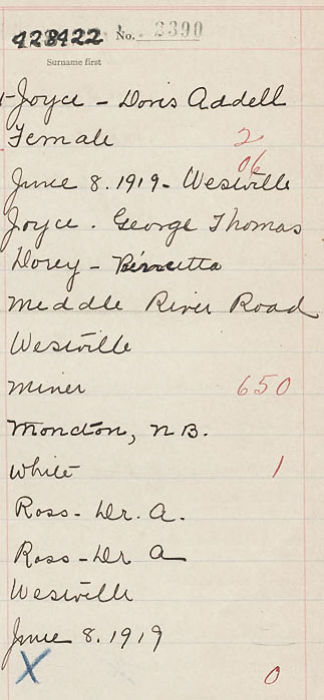 428422 No. 2390
Surname first
Joyce - Doris Addell
Female 2
06
June 8. 1919 - Westville
Joyce. George Thomas
Dorey -
Middle River Road
Westville
Miner 650
Moncton, N.B.
White 1
Ross - Dr. A.
Ross - Dr A
Westville
June 8. 1919
X 0